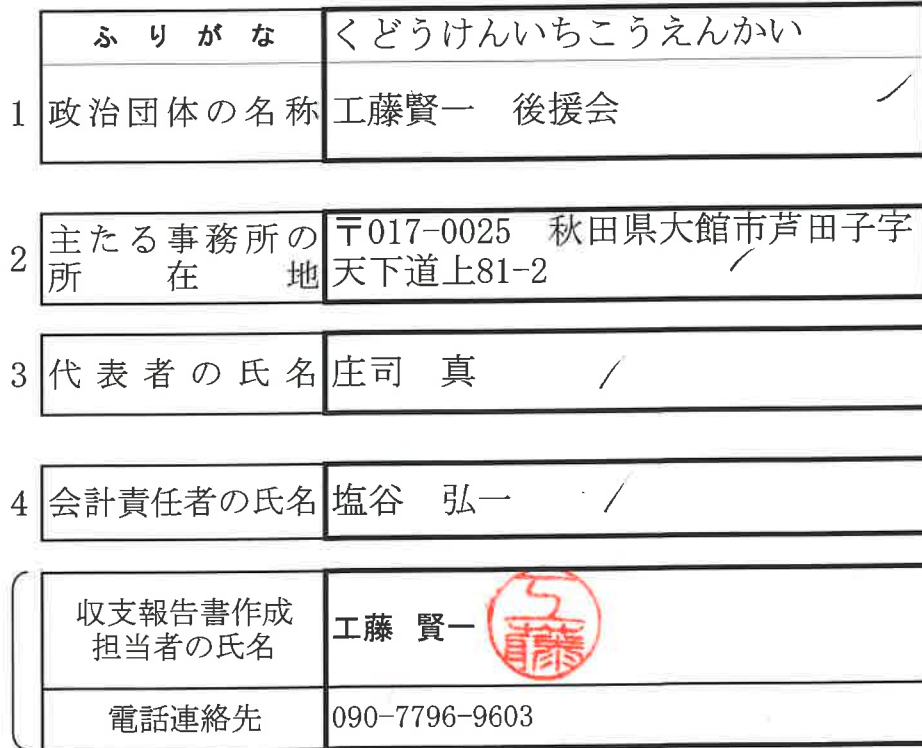 ふりがな くどうけんいちこうえんかい
1 政治団体の名称 工藤賢一 後援会
2 主たる事務所の所在地 〒017-0025 秋田県大館市芦田子字
天下道上81-2
3 代表者の氏名 庄司 真
4 会計責任者の氏名 塩谷 弘一
収支報告書作成
担当者の氏名 工藤 賢一 工藤
電話連絡先 090-7796-9603